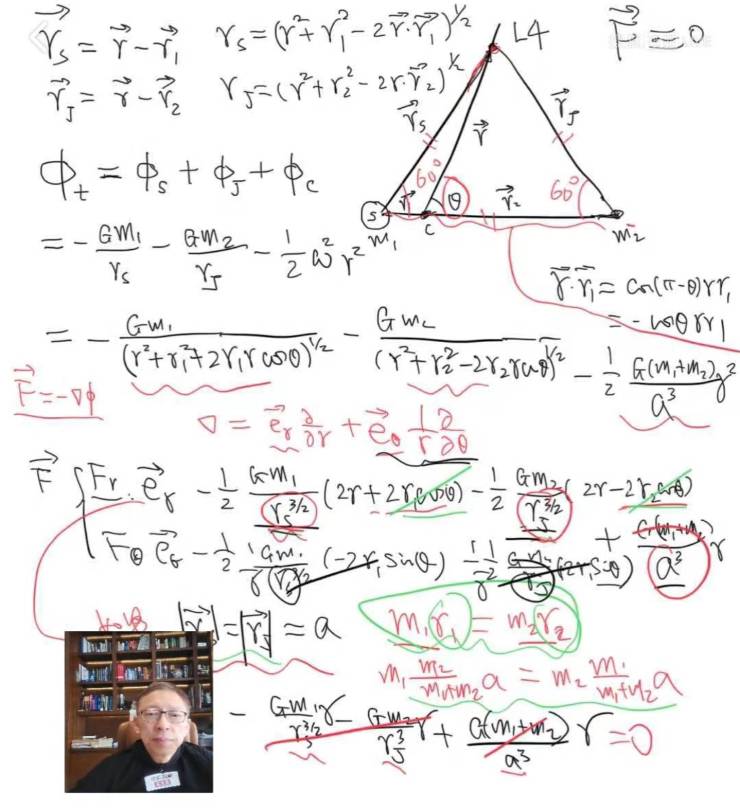 r⃗_S = r⃗ − r⃗_1   r_S = (r² + r_1² − 2r⃗·r⃗_1)^{1/2}   L4   F⃗ = 0
r⃗_J = r⃗ − r⃗_2   r_J = (r² + r_2² − 2r·r⃗_2)^{1/2}
r⃗_S   r⃗   r⃗_J
ϕ_t = ϕ_S + ϕ_J + ϕ_C
60°   60°
S   r⃗   θ   r⃗_2
m_1   C   m_2
= − Gm_1/r_S − Gm_2/r_J − 1/2 ω² r²
r⃗·r⃗_1 = cos(π−θ) r r_1
= −cosθ r r_1
= − Gm_1/(r² + r_1² + 2r_1 r cosθ)^{1/2} − Gm_2/(r² + r_2² − 2r_2 r cosθ)^{1/2} − 1/2 G(m_1+m_2)/a³ r²
F⃗ = −∇ϕ
∇ = e⃗_r ∂/∂r + e⃗_θ 1/r ∂/∂θ
F⃗ { F_r · e⃗_r   − 1/2 Gm_1/r_S^{3/2} (2r + 2r_1 cosθ) − 1/2 Gm_2/r_J^{3/2} (2r − 2r_2 cosθ) + G(m_1+m_2)/a³ r
F_θ e⃗_θ   − 1/2 1/r Gm_1 (−2r_1 sinθ)
|r⃗_S| = |r⃗_J| = a   m_1 r_1 = m_2 r_2
m_1 m_2/(m_1+m_2) a = m_2 m_1/(m_1+m_2) a
− Gm_1/r_S^{3/2} r − Gm_2/r_J^3 r + G(m_1+m_2)/a³ r = 0